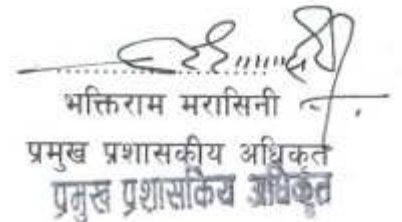 भक्तिराम मरासिनी
प्रमुख प्रशासकीय अधिकृत
प्रमुख प्रशासकिय अधिकृत